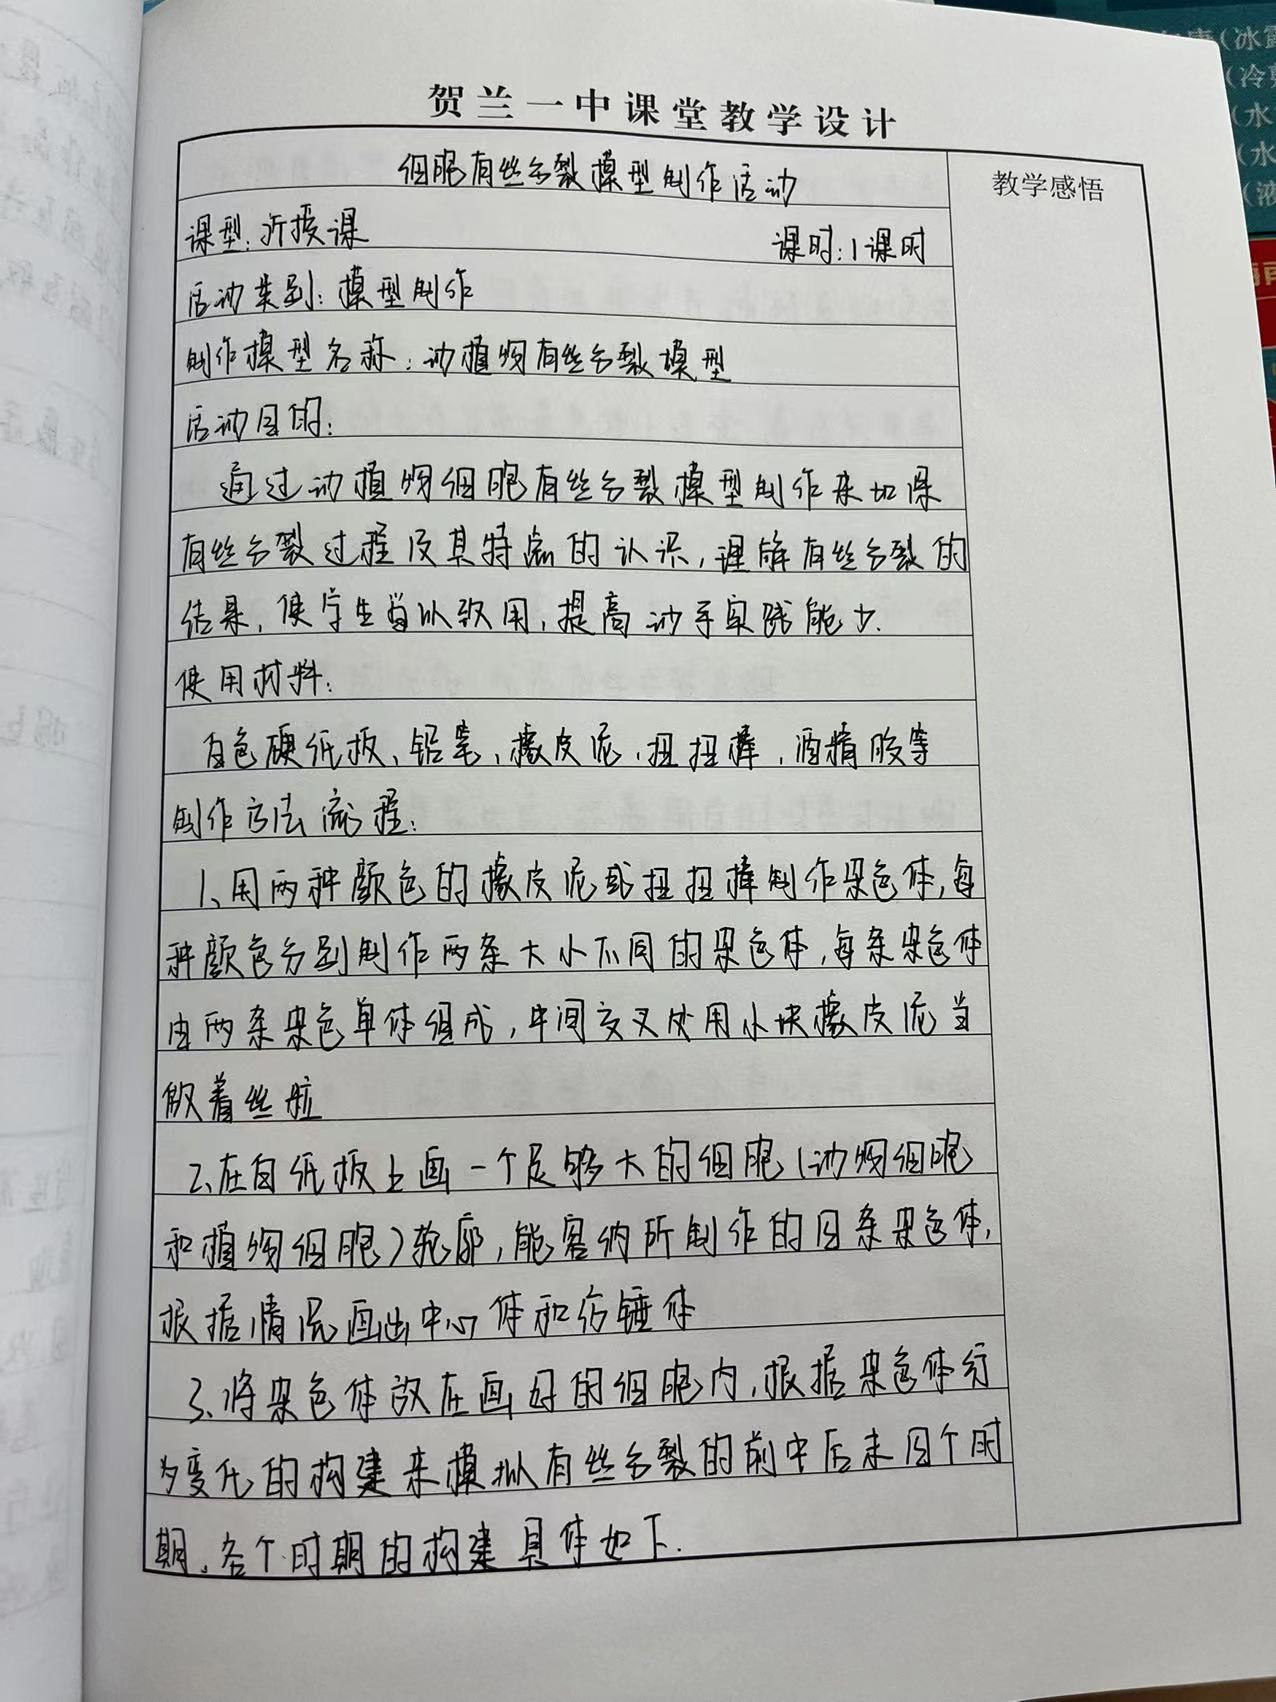 贺兰一中课堂教学设计
细胞有丝分裂模型制作活动
教学感悟
课型:新授课 课时:1课时
活动类别:模型制作
制作模型名称:动植物有丝分裂模型
活动目的:
通过动植物细胞有丝分裂模型制作来加深
有丝分裂过程及其特点的认识,理解有丝分裂的
结果,使学生学以致用,提高动手实践能力.
使用材料:
白色硬纸板、铅笔,橡皮泥,扭扭棒,酒精胶等
制作方法流程:
1、用两种颜色的橡皮泥或扭扭棒制作染色体,每
种颜色分别制作两条大小不同的染色体,每条染色体
由两条染色单体组成,中间交叉处用小块橡皮泥当
做着丝粒
2、在白纸板上画一个足够大的细胞(动物细胞
和植物细胞)轮廓,能容纳所制作的四条染色体,
根据情况画出中心体和纺锤体
3、将染色体放在画好的细胞内,根据染色体行
为变化的构建来模拟有丝分裂的前中后末四个时
期,各个时期的构建具体如下.
(冰露
(冷
(水
(水
(液